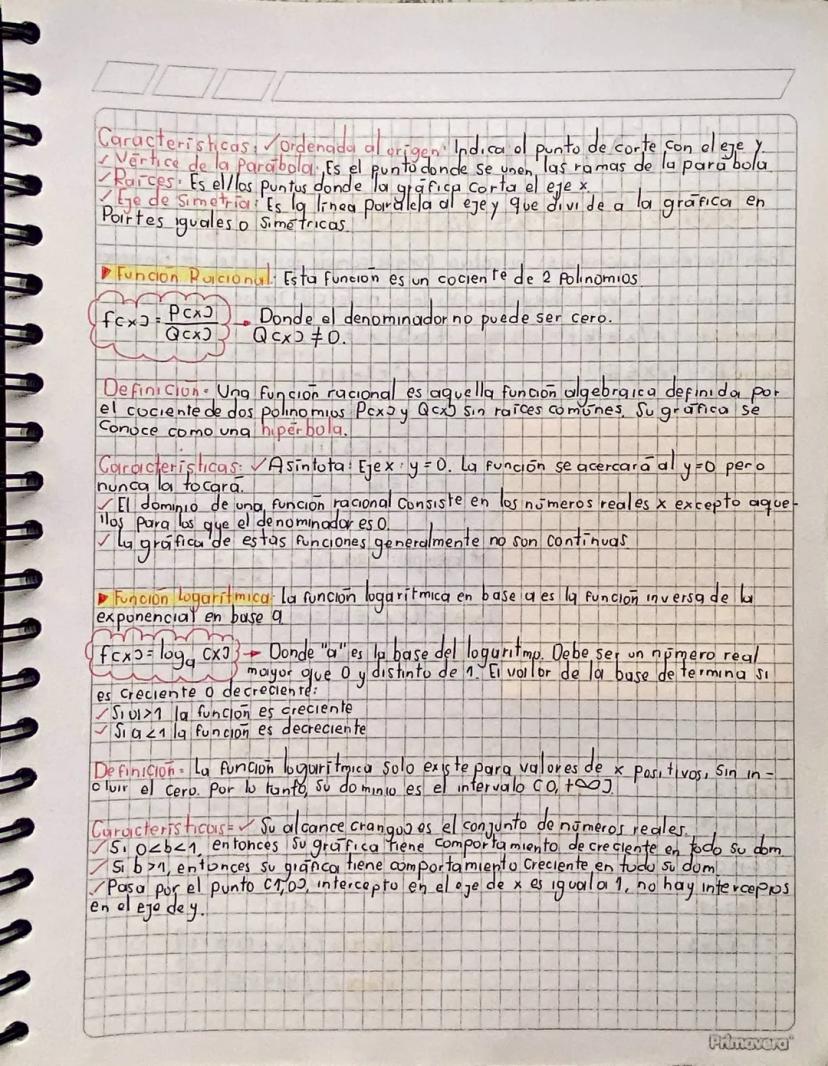 Características: ✓Ordenada al origen: Indica el punto de corte con el eje y.
✓Vértice de la parábola: Es el punto donde se unen las ramas de la parábola.
✓Raíces: Es el/los puntos donde la gráfica corta el eje x.
✓Eje de simetría: Es la línea paralela al eje y que divide a la gráfica en
Partes iguales o simétricas.
▶Función Racional: Esta función es un cociente de 2 Polinomios.
f(x) = P(x)/Q(x) → Donde el denominador no puede ser cero.
Q(x) ≠ 0.
Definición: Una función racional es aquella función algebraica definida por
el cociente de dos polinomios P(x) y Q(x) sin raíces comunes. Su gráfica se
Conoce como una hipérbola.
Características: ✓Asíntota: Eje x: y=0. La función se acercará al y=0 pero
nunca la tocará.
✓El dominio de una función racional consiste en los números reales x excepto aque-
llos para los que el denominador es 0.
✓La gráfica de estas funciones generalmente no son contínuas
▶Función Logarítmica: La función logarítmica en base a es la función inversa de la
exponencial en base a
f(x) = logₐ (x) → Donde "a" es la base del logaritmo. Debe ser un número real
mayor que 0 y distinto de 1. El valor de la base determina si
es creciente o decreciente:
✓Si a>1 la función es creciente
✓Si a<1 la función es decreciente
Definición: La función logarítmica solo existe para valores de x positivos, sin in-
cluir el cero. Por lo tanto, su dominio es el intervalo (0, +∞).
Características: ✓Su alcance (rango) es el conjunto de números reales.
✓Si 0<b<1, entonces su gráfica tiene comportamiento decreciente en todo su dom
✓Si b>1, entonces su gráfica tiene comportamiento creciente en todo su dom
✓Pasa por el punto (1,0), intercepto en el eje de x es igual a 1, no hay interceptos
en el eje de y.
Primavera